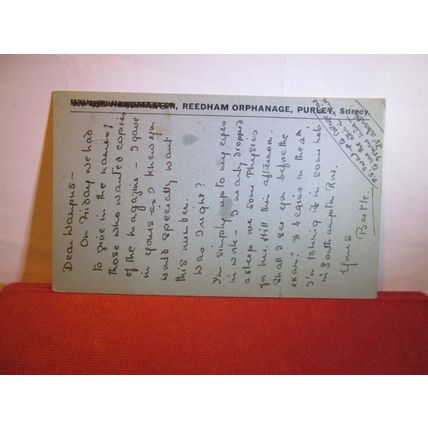 REEDHAM ORPHANAGE, PURLEY, Surrey.
Dear Wampus –
On Friday we had
to give in the names of
those who wanted copies
of the magazine – I gave
in yours as I knew you
would specially want
this number.
Was I right?
I'm simply up to my eyes
in work – I nearly dropped
asleep over some Physics
for her. Hill this afternoon.
Shall I see you before the
exam? It begins in the
I'm taking it in some hole
in Southampton Row.
Yours
Beetle.